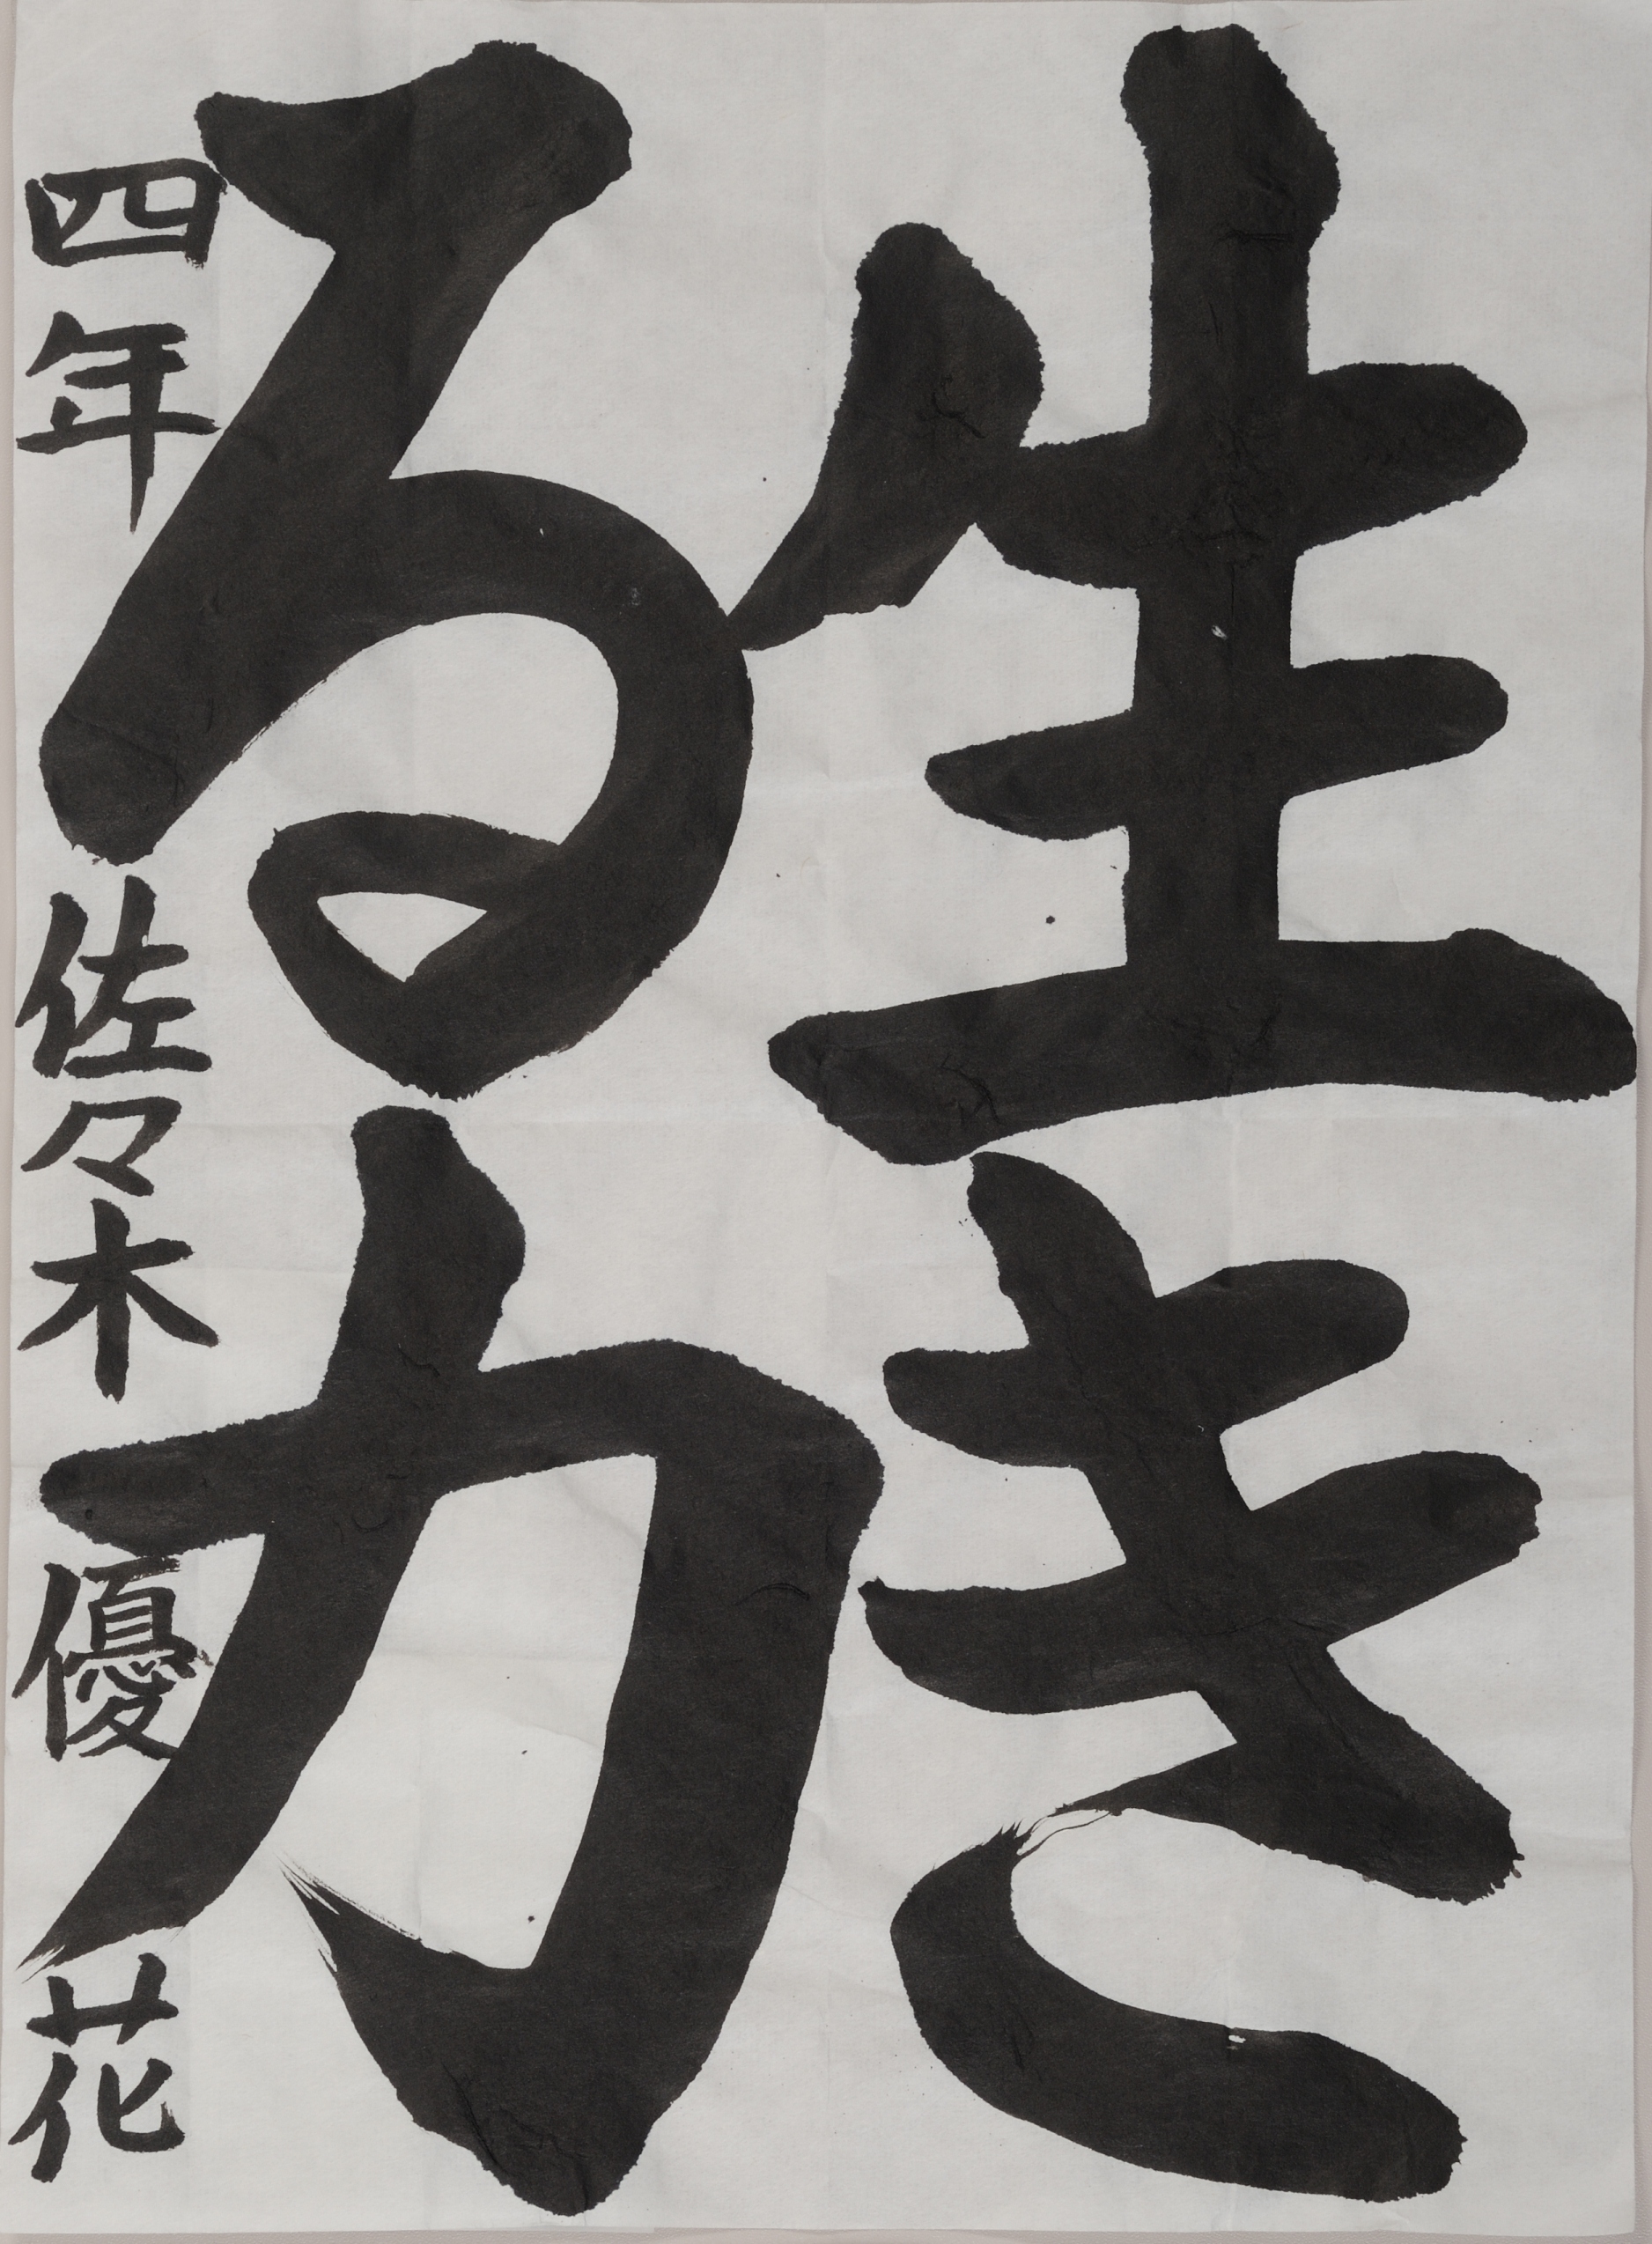 生き
る力
四年 佐々木 優花